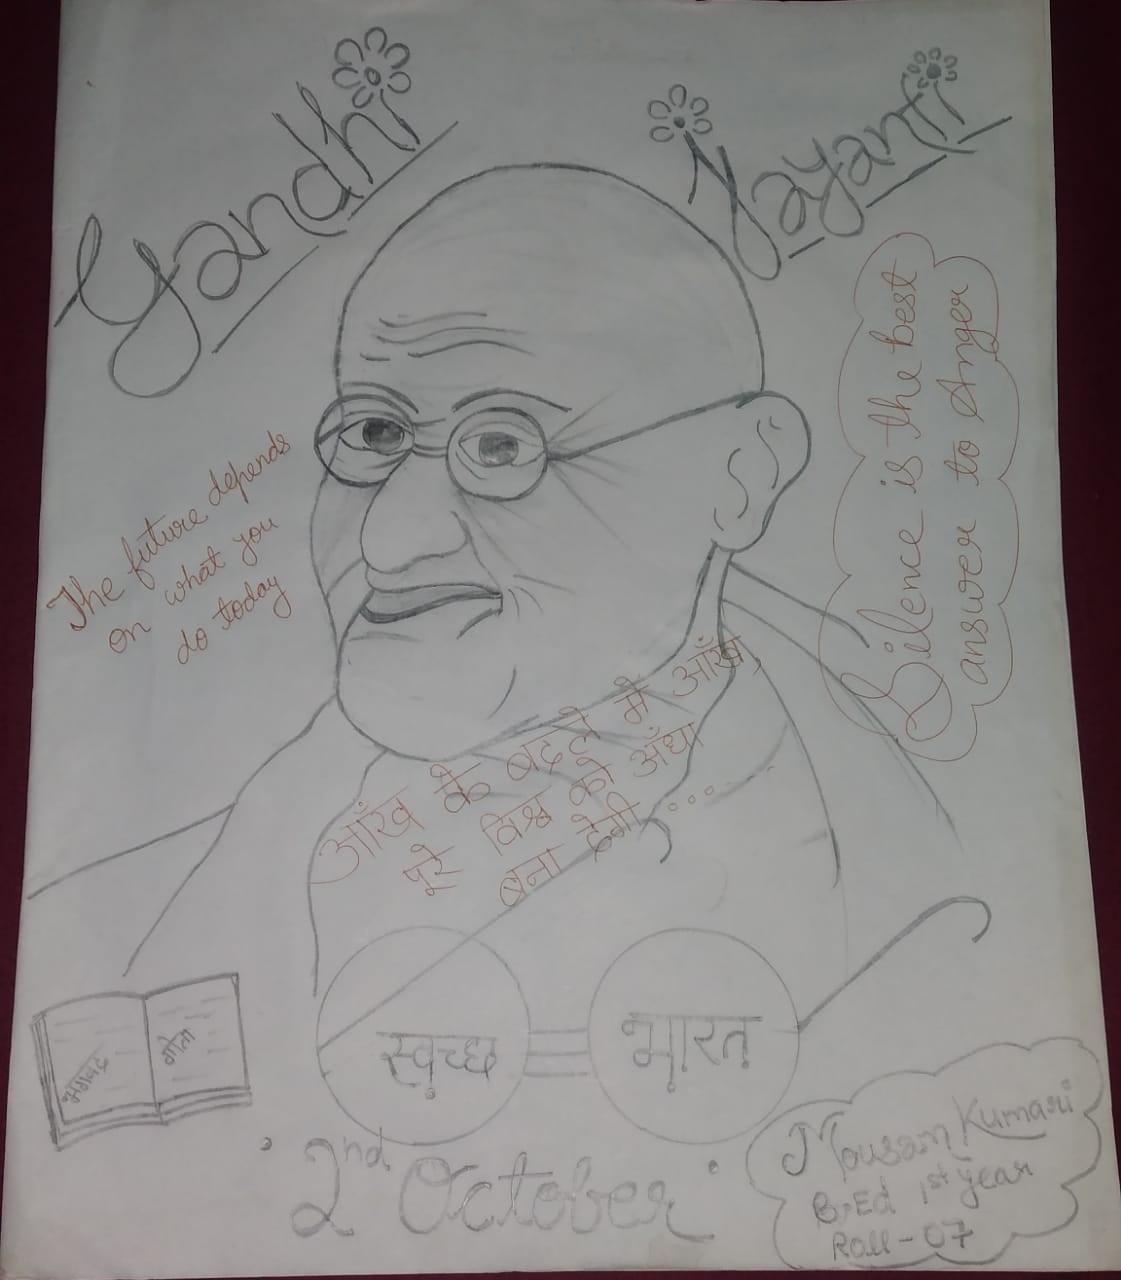 Gandhi Jayanti
The future depends
on what you
do today
Silence is the best
answer to Anger
आँख के बदले में आँख,
पूरे विश्व को अँधा
बना देगी....
स्वच्छ भारत
भगवद गीता
2nd October
Mousam Kumari
B.Ed 1st year
Roll - 07